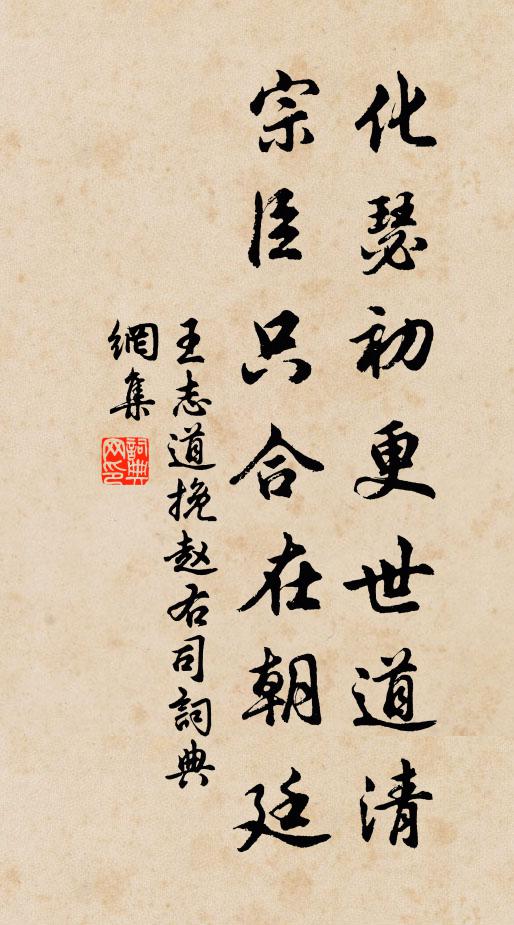 化瑟初更世道清
宗臣只合在朝廷
王志道挽赵右司詞典
網集
詞典网印